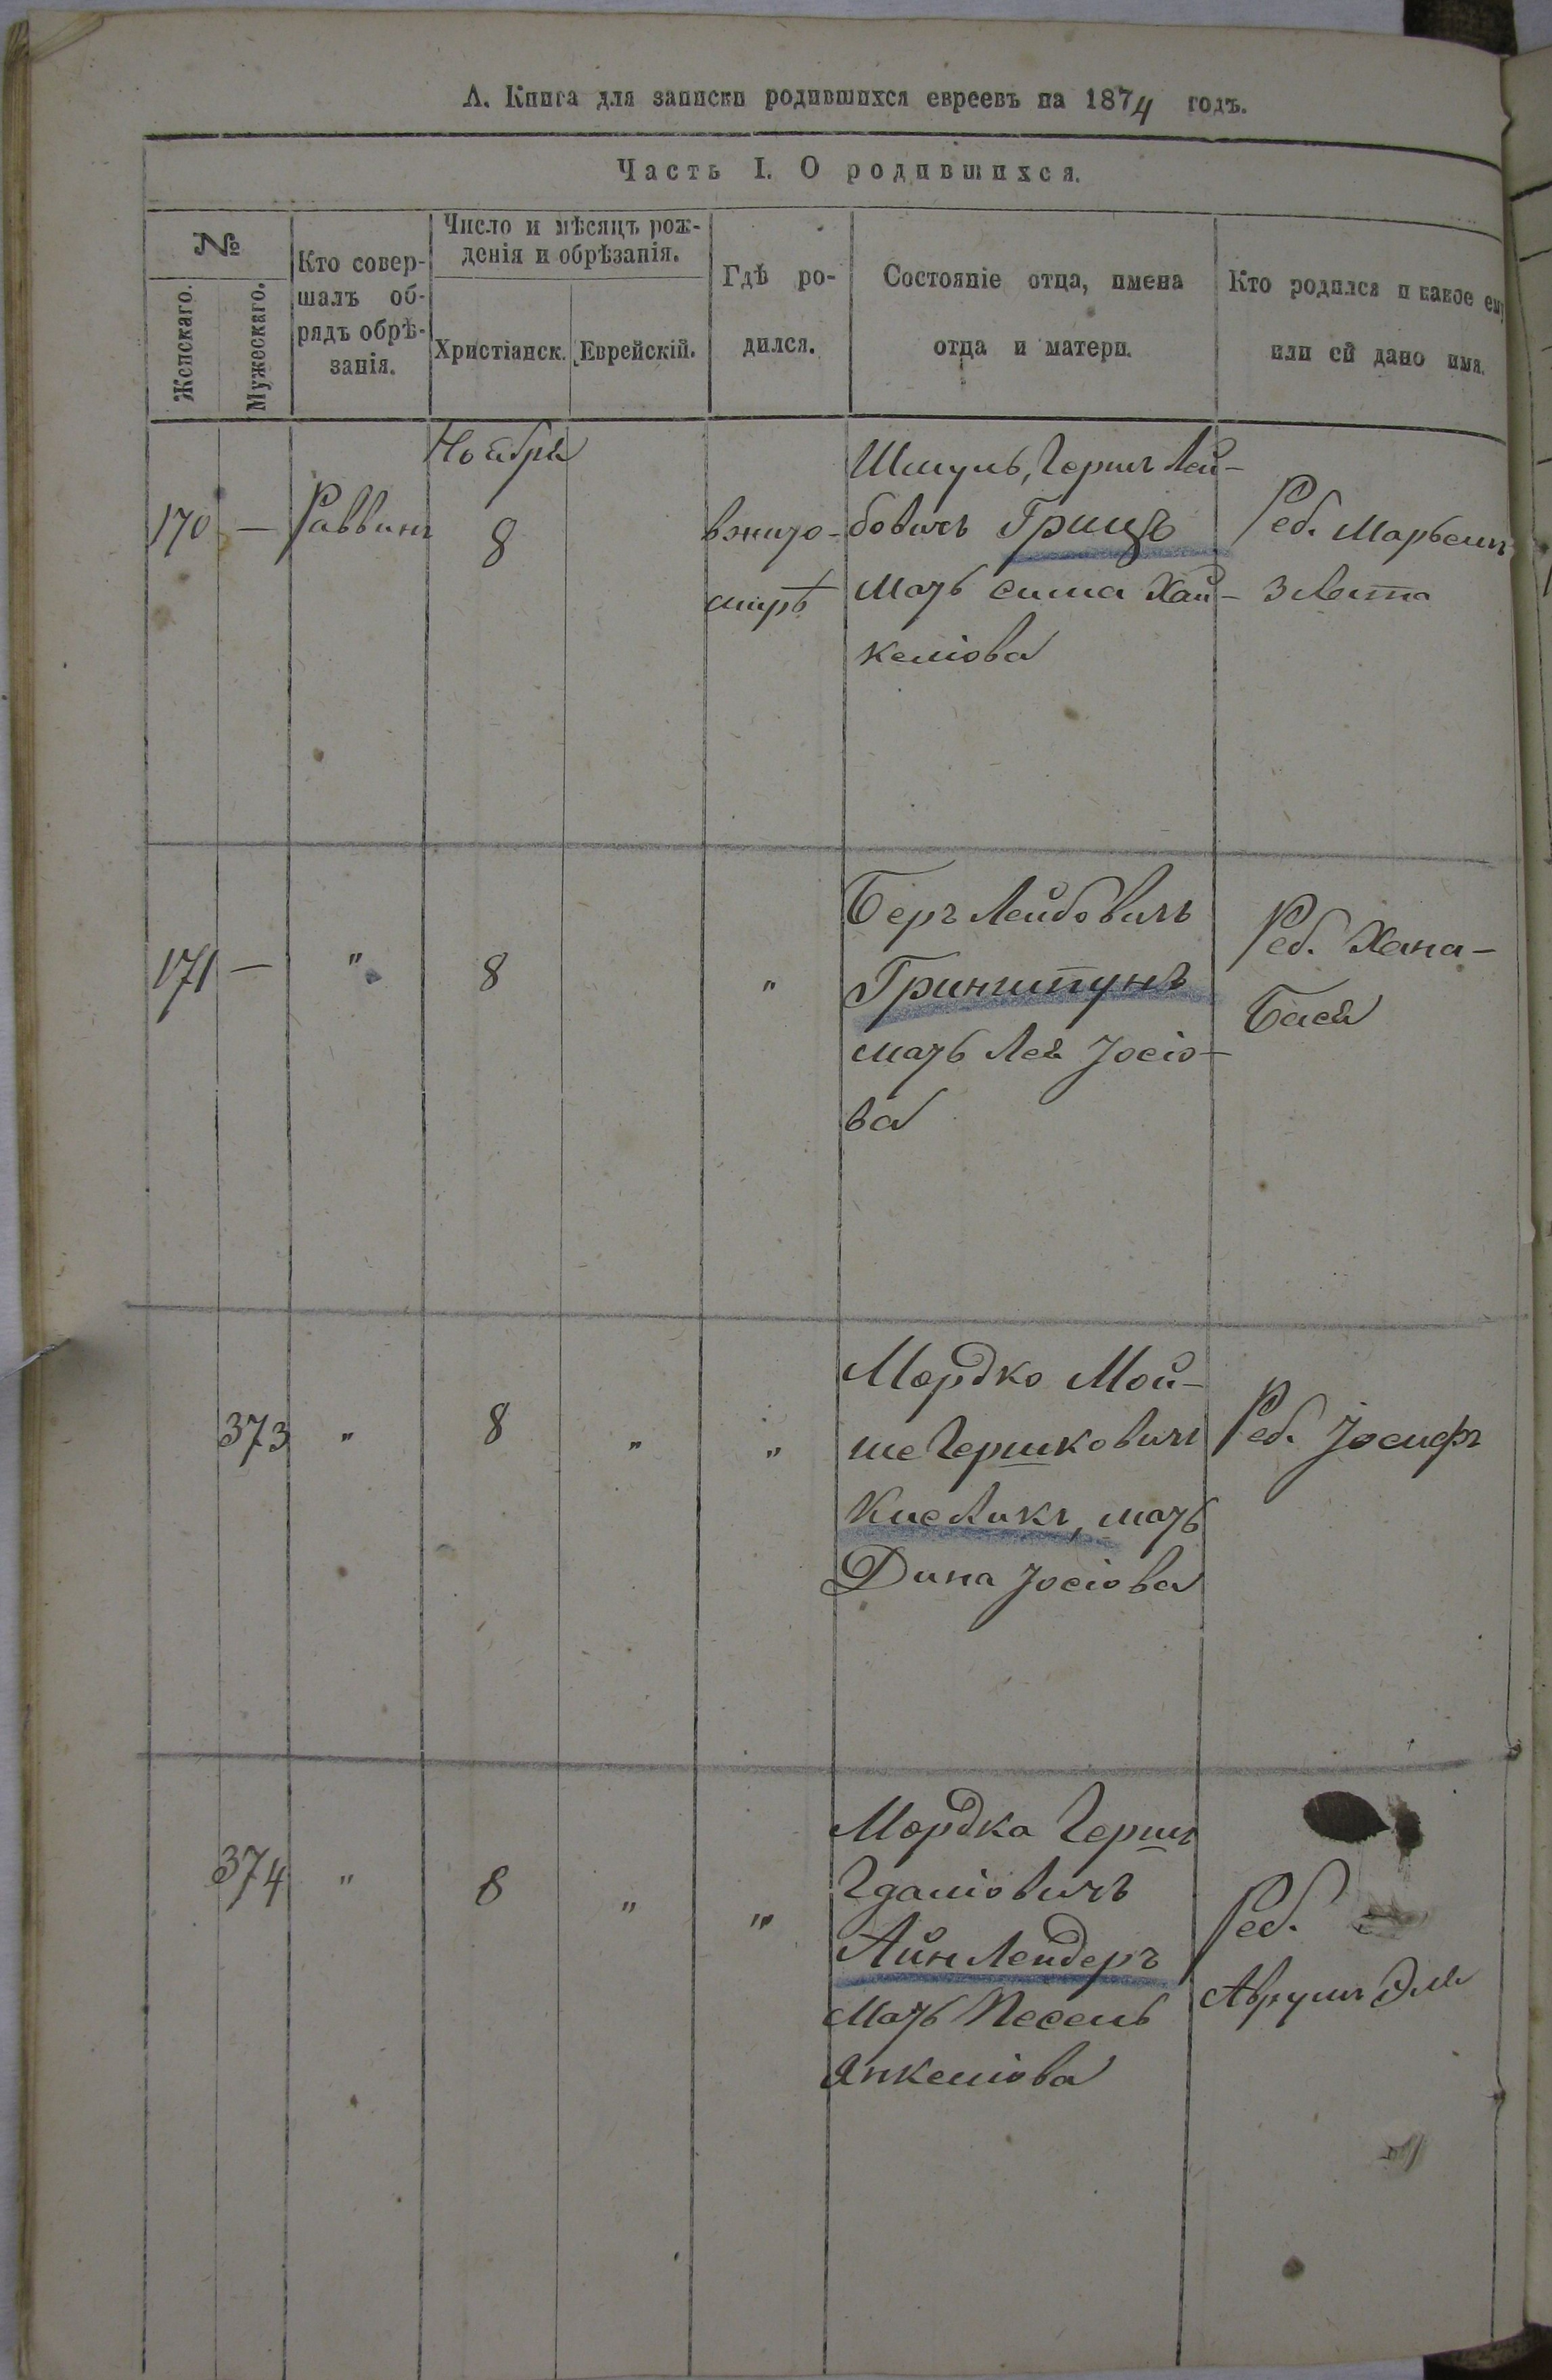 А. Книга для записки родившихся евреевъ на 1874 годъ.
Часть I. О родившихся.
№
Женскаго.
Мужескаго.
Кто совер-
шалъ об-
рядъ обрѣ-
занія.
Число и мѣсяцъ рож-
денія и обрѣзанія.
Христіанск.
Еврейскій.
Гдѣ ро-
дился.
Состояніе отца, имена
отца и матери.
Кто родился и какое ему
или ей дано имя.
Ноября
170 — Раввинъ 8
вжито-
мирѣ
Шмуль, Гершъ Лей-
бовичъ Грицъ
мать Сима Хай-
келіова
Реб. Марьемъ
Злата
171 — " 8 "
Беръ Лейбовичъ
Гринштунъ
мать Лея Іосіо-
ва
Реб. Хана-
Бася
373 " 8 " "
Мордко Мой-
ше Гершковичъ
Киеликъ, мать
Дина Іосіова
Реб. Іосифъ
374 " 8 " "
Мордка Гершъ
Гдаліовичъ
Айнлендеръ
мать Песель
Янкеліова
Реб.
Аврумъ Эля